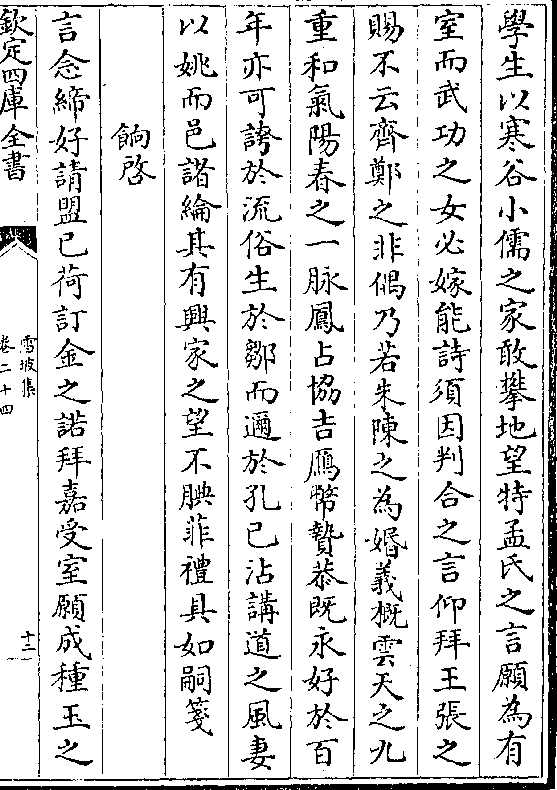 學生以寒谷小儒之家敢攀地望特孟氏之言願為有
室而武功之女必嫁能詩須因判合之言仰拜王張之
賜不云齊鄭之非偶乃若朱陳之為婚義概雲天之九
重和氣陽春之一脉鳳占協吉鴈幣贄恭既永好於百
年亦可誇於流俗生於鄒而邇於孔已沾講道之風妻
以姚而邑諸綸其有興家之望不腆菲禮具如嗣箋
餉啓
言念締好請盟已荷訂金之諾拜嘉受室願成種玉之
欽定四庫全書
雪坡集
卷二十四
十三